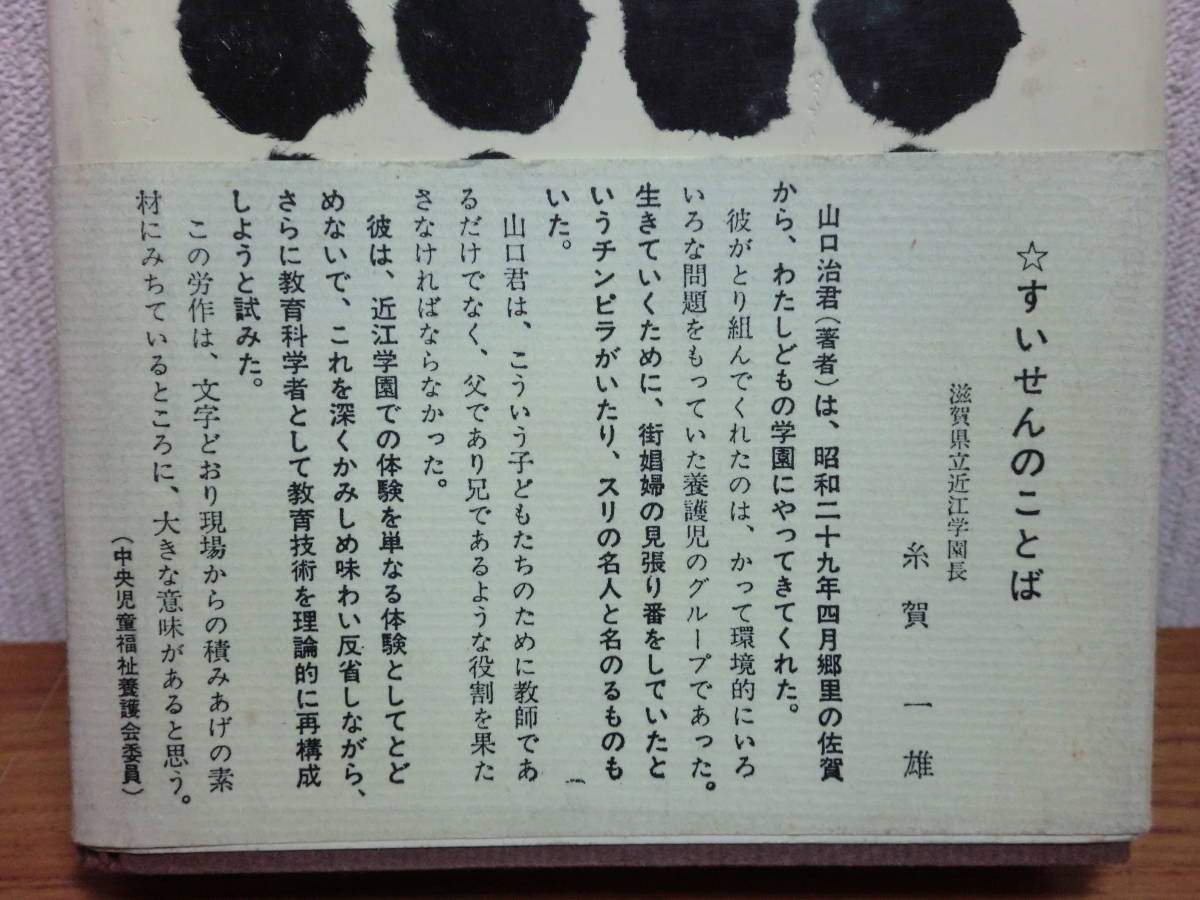 ☆すいせんのことば
滋賀県立近江学園長
糸賀一雄
山口治君(著者)は、昭和二十九年四月郷里の佐賀
から、わたしどもの学園にやってきてくれた。
彼がとり組んでくれたのは、かって環境的にいろ
いろな問題をもっていた養護児のグループであった。
生きていくために、街娼婦の見張り番をしていたと
いうチンピラがいたり、スリの名人と名のるものも
いた。
山口君は、こういう子どもたちのために教師であ
るだけでなく、父であり兄であるような役割を果た
さなければならなかった。
彼は、近江学園での体験を単なる体験としてとど
めないで、これを深くかみしめ味わい反省しながら、
さらに教育科学者として教育技術を理論的に再構成
しようと試みた。
この労作は、文字どおり現場からの積みあげの素
材にみちているところに、大きな意味があると思う。
(中央児童福祉養護会委員)